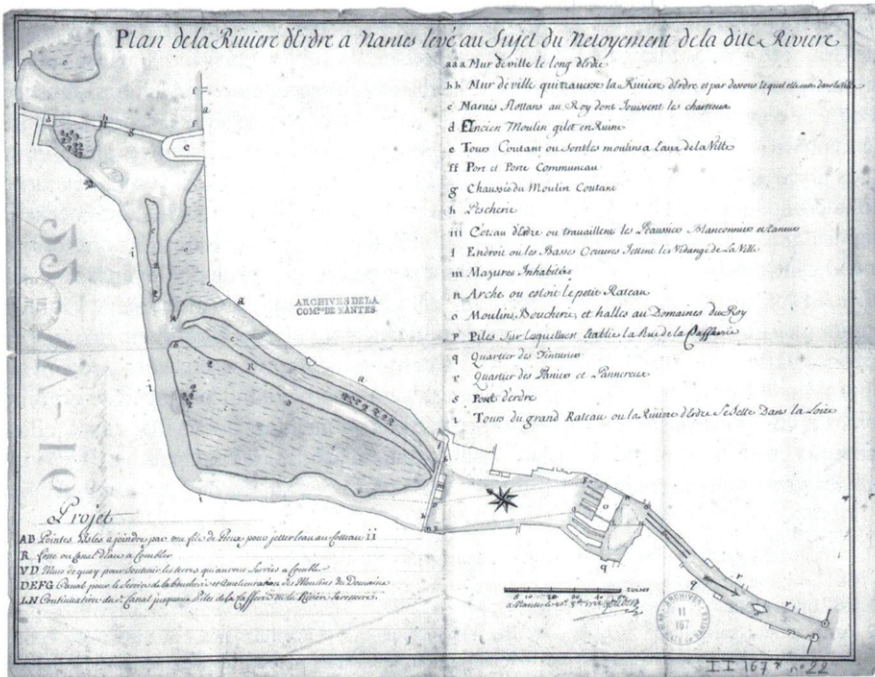 Plan de la Riviere d'Erdre a Nantes levé au Sujet du Netoyement de la dite Riviere
aaa Mur de ville le long d'Erdre
bb Mur de ville qui traverse la Riviere d'Erdre et par dessous lequel elle entre dans la Ville
c Marais flottans au Roy dont Jouissent les chartreux
d Encien Moulin gilot en Ruine
e Tours Coutant ou sont les moulins a l'eaux de la Ville
ff Port et Porte Communeau
g Chaussée du Moulin Coutant
h Pescherie
iii Coteau d'Erdre ou travaillent les Peaussiers Blanconniers et Tanneurs
l Endroit ou les Basses Oeuvres Jettent les Vidange de La Ville
m Mazures Inhabitées
n Arche ou estoit le petit Rateau
o Moulins, Boucherie, et halles au Domaines du Roy
p Piles Sur lesquelles est établie la Rue de la Cafferie
q Quartier des Tinturiers
r Quartier des Paniers et Pannereux
s Pont d'erdre
i Tours du grand Rateau ou la Riviere d'Erdre Se Jette Dans la Loire
ARCHIVES DE LA
COMNE DE NANTES
22OW-16
Projet
AB Pointes d'Isles a joindre par une file de Pieux pour jetter l'eau au Cotteau II
R fosse ou Canal d'eau a Combler
VD Murs de quay pour Soutenir les terres qui auront Servies a Comble
DEFG Canal pour le Service de la boucherie et amelioration des Moulins du Domaine
LN Continuation du Canal jusqu'aux Piles de la Cafferie ou la Riviere Se resserre
5 10 20 30 40 50 TOISES
a Nantes le
ARCHIVES
II
167
II 167 * no 22